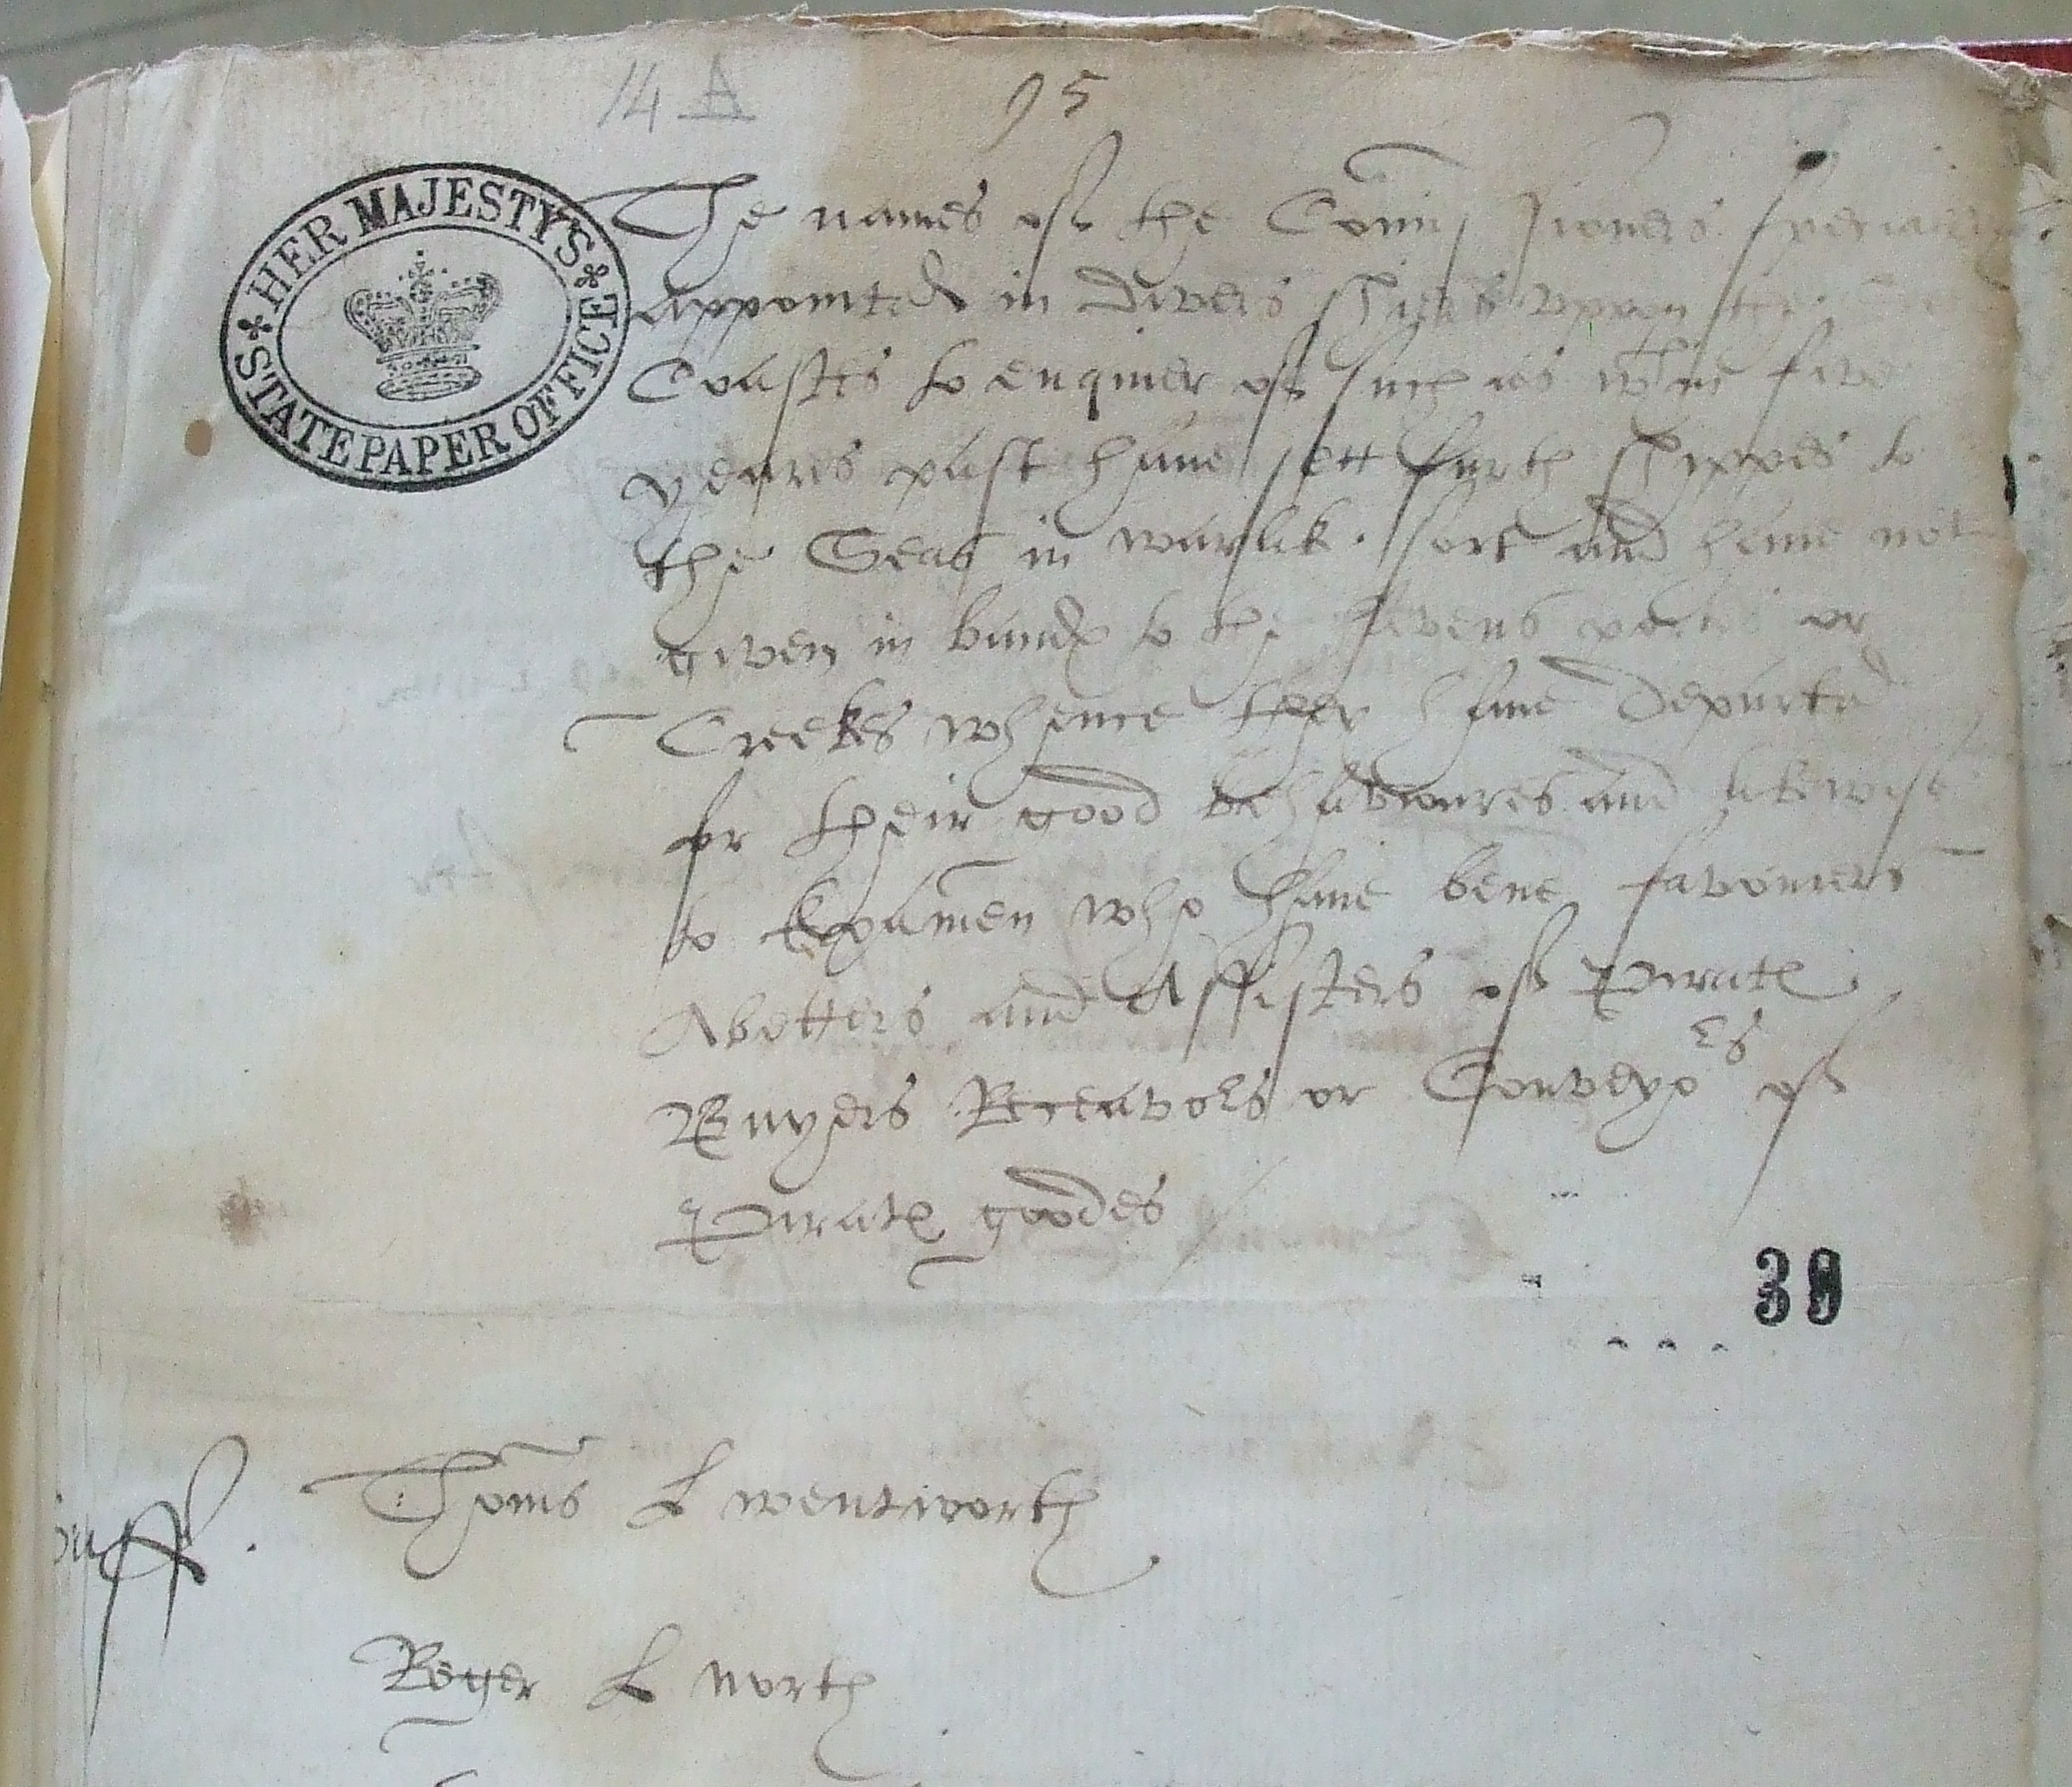 14 A 95
HER MAJESTY'S STATE PAPER OFFICE
The names of the Comissioners speciallie
appointed in divers shiers upon the
Coastes to enquier of such as wthin five
yeares past have sett furth shippes to
the Seas in warlik sort and have not
given in bandes to the havens portes or
Creekes whence they have departed
for their good behavioures and likewise
to Examen who have bene favourers
Abetters and Assisters of Pirates
Buyers Receavors or Conveyors of
Pirates goodes
39
Suff. Thoms L wentworth
Roger L North